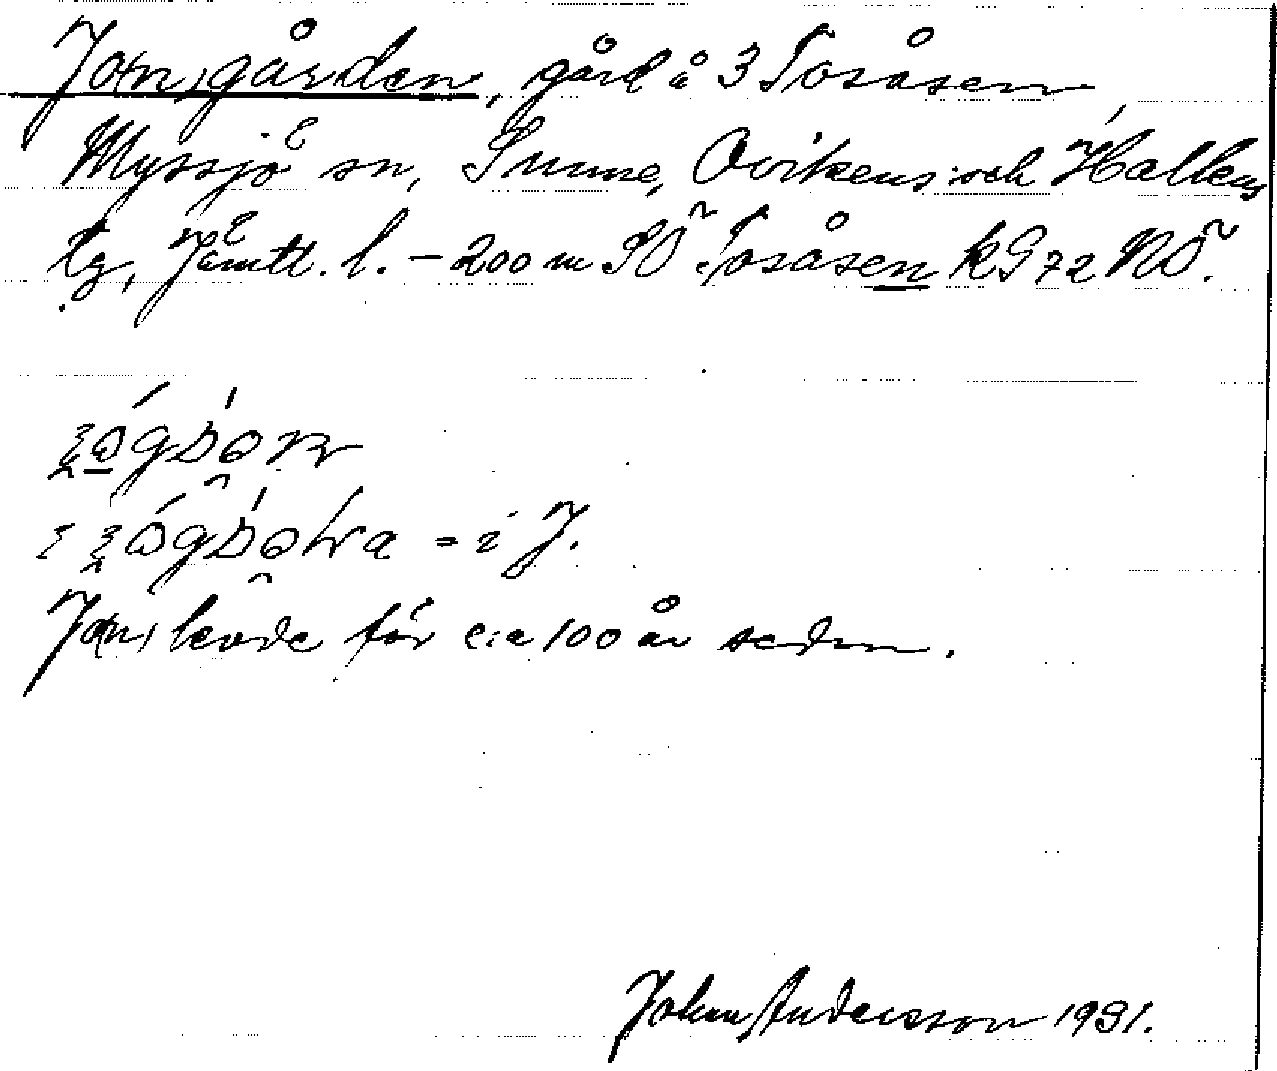 Jo(n)sgården, gård å 3 Tosåsen,
Myssjö sn, Sunne, Ovikens och Hallens
tg, Jämtl. l. – 200 m SÖ Tosåsen kS 72 NÖ.
= i J.
Jo(n)s levde för c:a 100 år sedan.
John Andersson 1931.